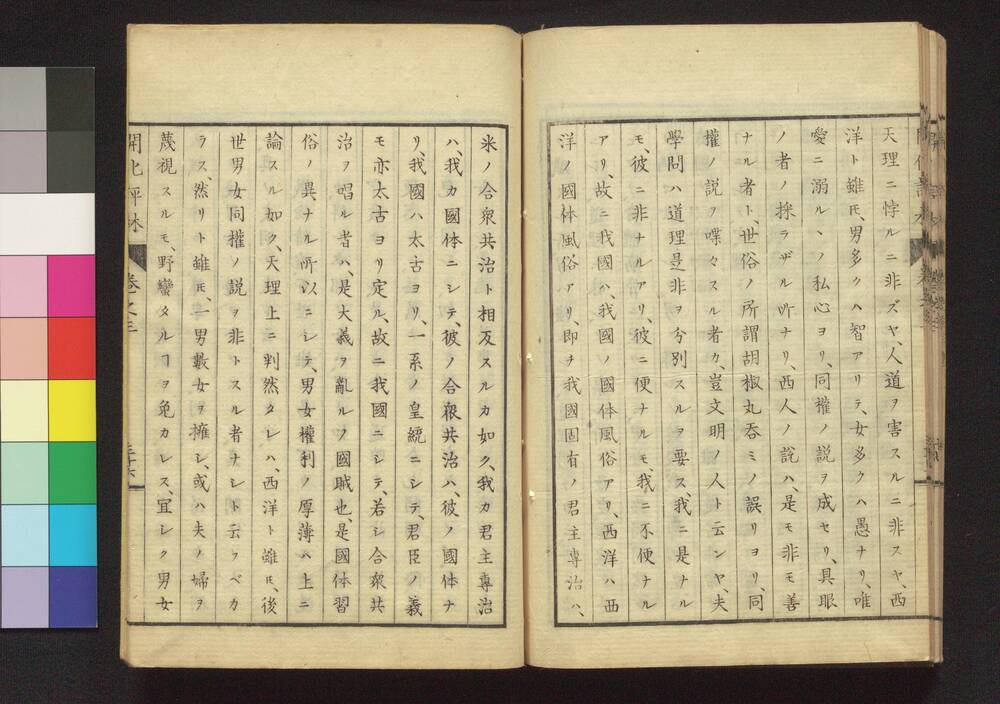 天理ニ悖ルニ非ズヤ、人道ヲ害スルニ非スヤ、西
洋ト雖𪜈、男多クハ智アリテ、女多クハ愚ナリ、唯
愛ニ溺ルヽノ私心ヨリ、同權ノ説ヲ成セリ、具眼
ノ者ノ採ラザル所ナリ、西人ノ説ハ、是モ非モ善
ナル者ト、世俗ノ所謂胡椒丸呑ミノ誤リヨリ、同
權ノ説ヲ喋々スル者カ、豈文明ノ人ト云ンヤ、夫
學問ハ道理是非ヲ分別スルヲ要ス、我ニ是ナル
モ、彼ニ非ナルアリ、彼ニ便ナルモ、我ニ不便ナル
アリ、故ニ我國ハ、我國ノ國体風俗アリ、西洋ハ西
洋ノ國体風俗アリ、即チ我國固有ノ君主専治ハ、
米ノ合衆共治ト相反スルカ如ク、我カ君主專治
ハ、我カ國体ニシテ、彼ノ合衆共治ハ、彼ノ國体ナ
リ、我國ハ太古ヨリ、一系ノ皇統ニシテ、君臣ノ義
モ亦太古ヨリ定ル、故ニ我國ニシテ、若シ合衆共
治ヲ唱ル者ハ、是大義ヲ亂ルノ國賊也、是國体習
俗ノ異ナル所以ニシテ、男女權利ノ厚薄ハ上ニ
論スル如ク、天理上ニ判然タレハ、西洋ト雖𪜈、後
世男女同權ノ説ヲ非トスル者ナシト云フベカ
ラス、然リト雖𪜈、一男數女ヲ擁シ、或ハ夫ノ婦ヲ
蔑視スルモ、野蠻タルヿヲ免カレス、宜シク男女
開化評林 卷之三